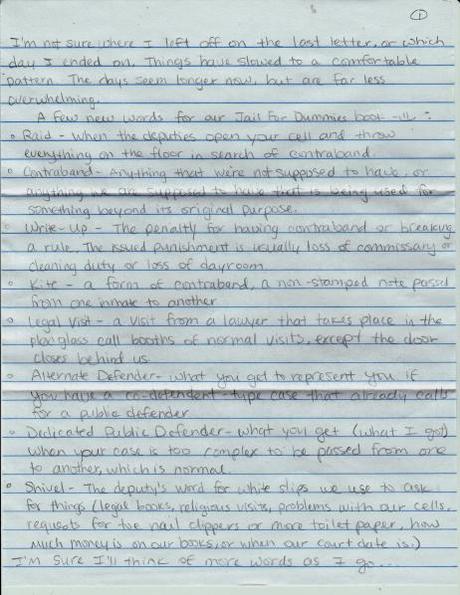 1
I'm not sure where I left off on the last letter, or which
day I ended on. Things have slowed to a comfortable
pattern. The days seem longer now, but are far less
overwhelming.
A few new words for our Jail For Dummies book :
• Raid - when the deputies open your cell and throw
everything on the floor in search of contraband.
• Contraband - Anything that we're not supposed to have, or
anything we are supposed to have that is being used for
something beyond its original purpose.
• Write-Up - The penalty for having contraband or breaking
a rule. The issued punishment is usually loss of commissary or
cleaning duty or loss of dayroom.
• Kite - a form of contraband, a non-stamped note passed
from one inmate to another
• Legal Visit - a visit from a lawyer that takes place in the
plexiglass call booths of normal visits, except the door
closes behind us.
• Alternate Defender - what you get to represent you if
you have a co-defendent-type case that already calls
for a public defender
• Dedicated Public Defender - what you get (what I got)
when your case is too complex to be passed from one
to another, which is normal.
• Shivel - The deputy's word for white slips we use to ask
for things (legal books, religious visits, problems with our cells,
requsots for toe nail clippers or more toilet paper, how
much money is on our books, or when our court date is.)
I'm sure I'll think of more words as I go...